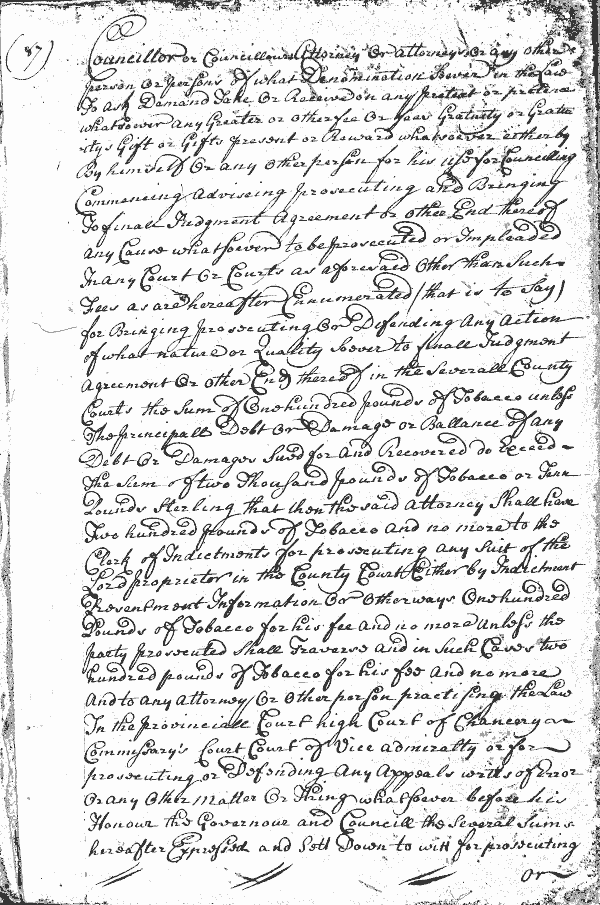 (87)
Councillor or Councillours Attorney Or Attorneys Or any other
person Or persons of what Denomination Soever in the Law
To ask Demand Take Or Receive on any pretext or pretence
whatsoever any Greater or other fee Or fees Gratuity or Gratu
itys Gift or Gifts present or Reward whatsoever either by
By himself Or any other person for his use for Councilling
Commencing adviseing prosecuting and Bringing
To finall Judgment Agreement or other End thereof
any Cause whatsoever to be prosecuted or Impleaded
In any Court Or Courts as aforesaid Other than Such
Fees as are hereafter Enumerated (that is to Say)
for Bringing prosecuting Or Defending Any Action
of what nature or Quality Soever to finall Judgment
Agreement Or other End thereof in the Severall County
Courts the Sum of One hundred pounds of Tobacco unless
The principall Debt Or Damage or Ballance of any
Debt Or Damages Sued for And Recovered do Exceed
The Sum of two Thousand pounds of Tobacco or Tenn
Pounds Sterling that then the said Attorney Shall have
Two hundred pounds of Tobacco and no more to the
Clerk of Indictments for prosecuting any Suit of the
Lord proprietor in the County Court Either by Indictment
Presentment Information Or Otherways One hundred
Pounds of Tobacco for his fee And no more Unless the
party prosecuted Shall Traverse and in Such Cases two
hundred pounds of Tobacco for his fee and no more
And to any Attorney Or Other person practising the Law
In the Provinciall Court high Court of Chancery or
Commissary's Court Court of Vice admiralty or for
prosecuting or Defending Any Appeals writts of Error
Or any Other Matter Or Thing whatsoever before his
Honour the Governour and Councill the Several Sums
hereafter Expressed and Sett Down to witt for prosecuting
or